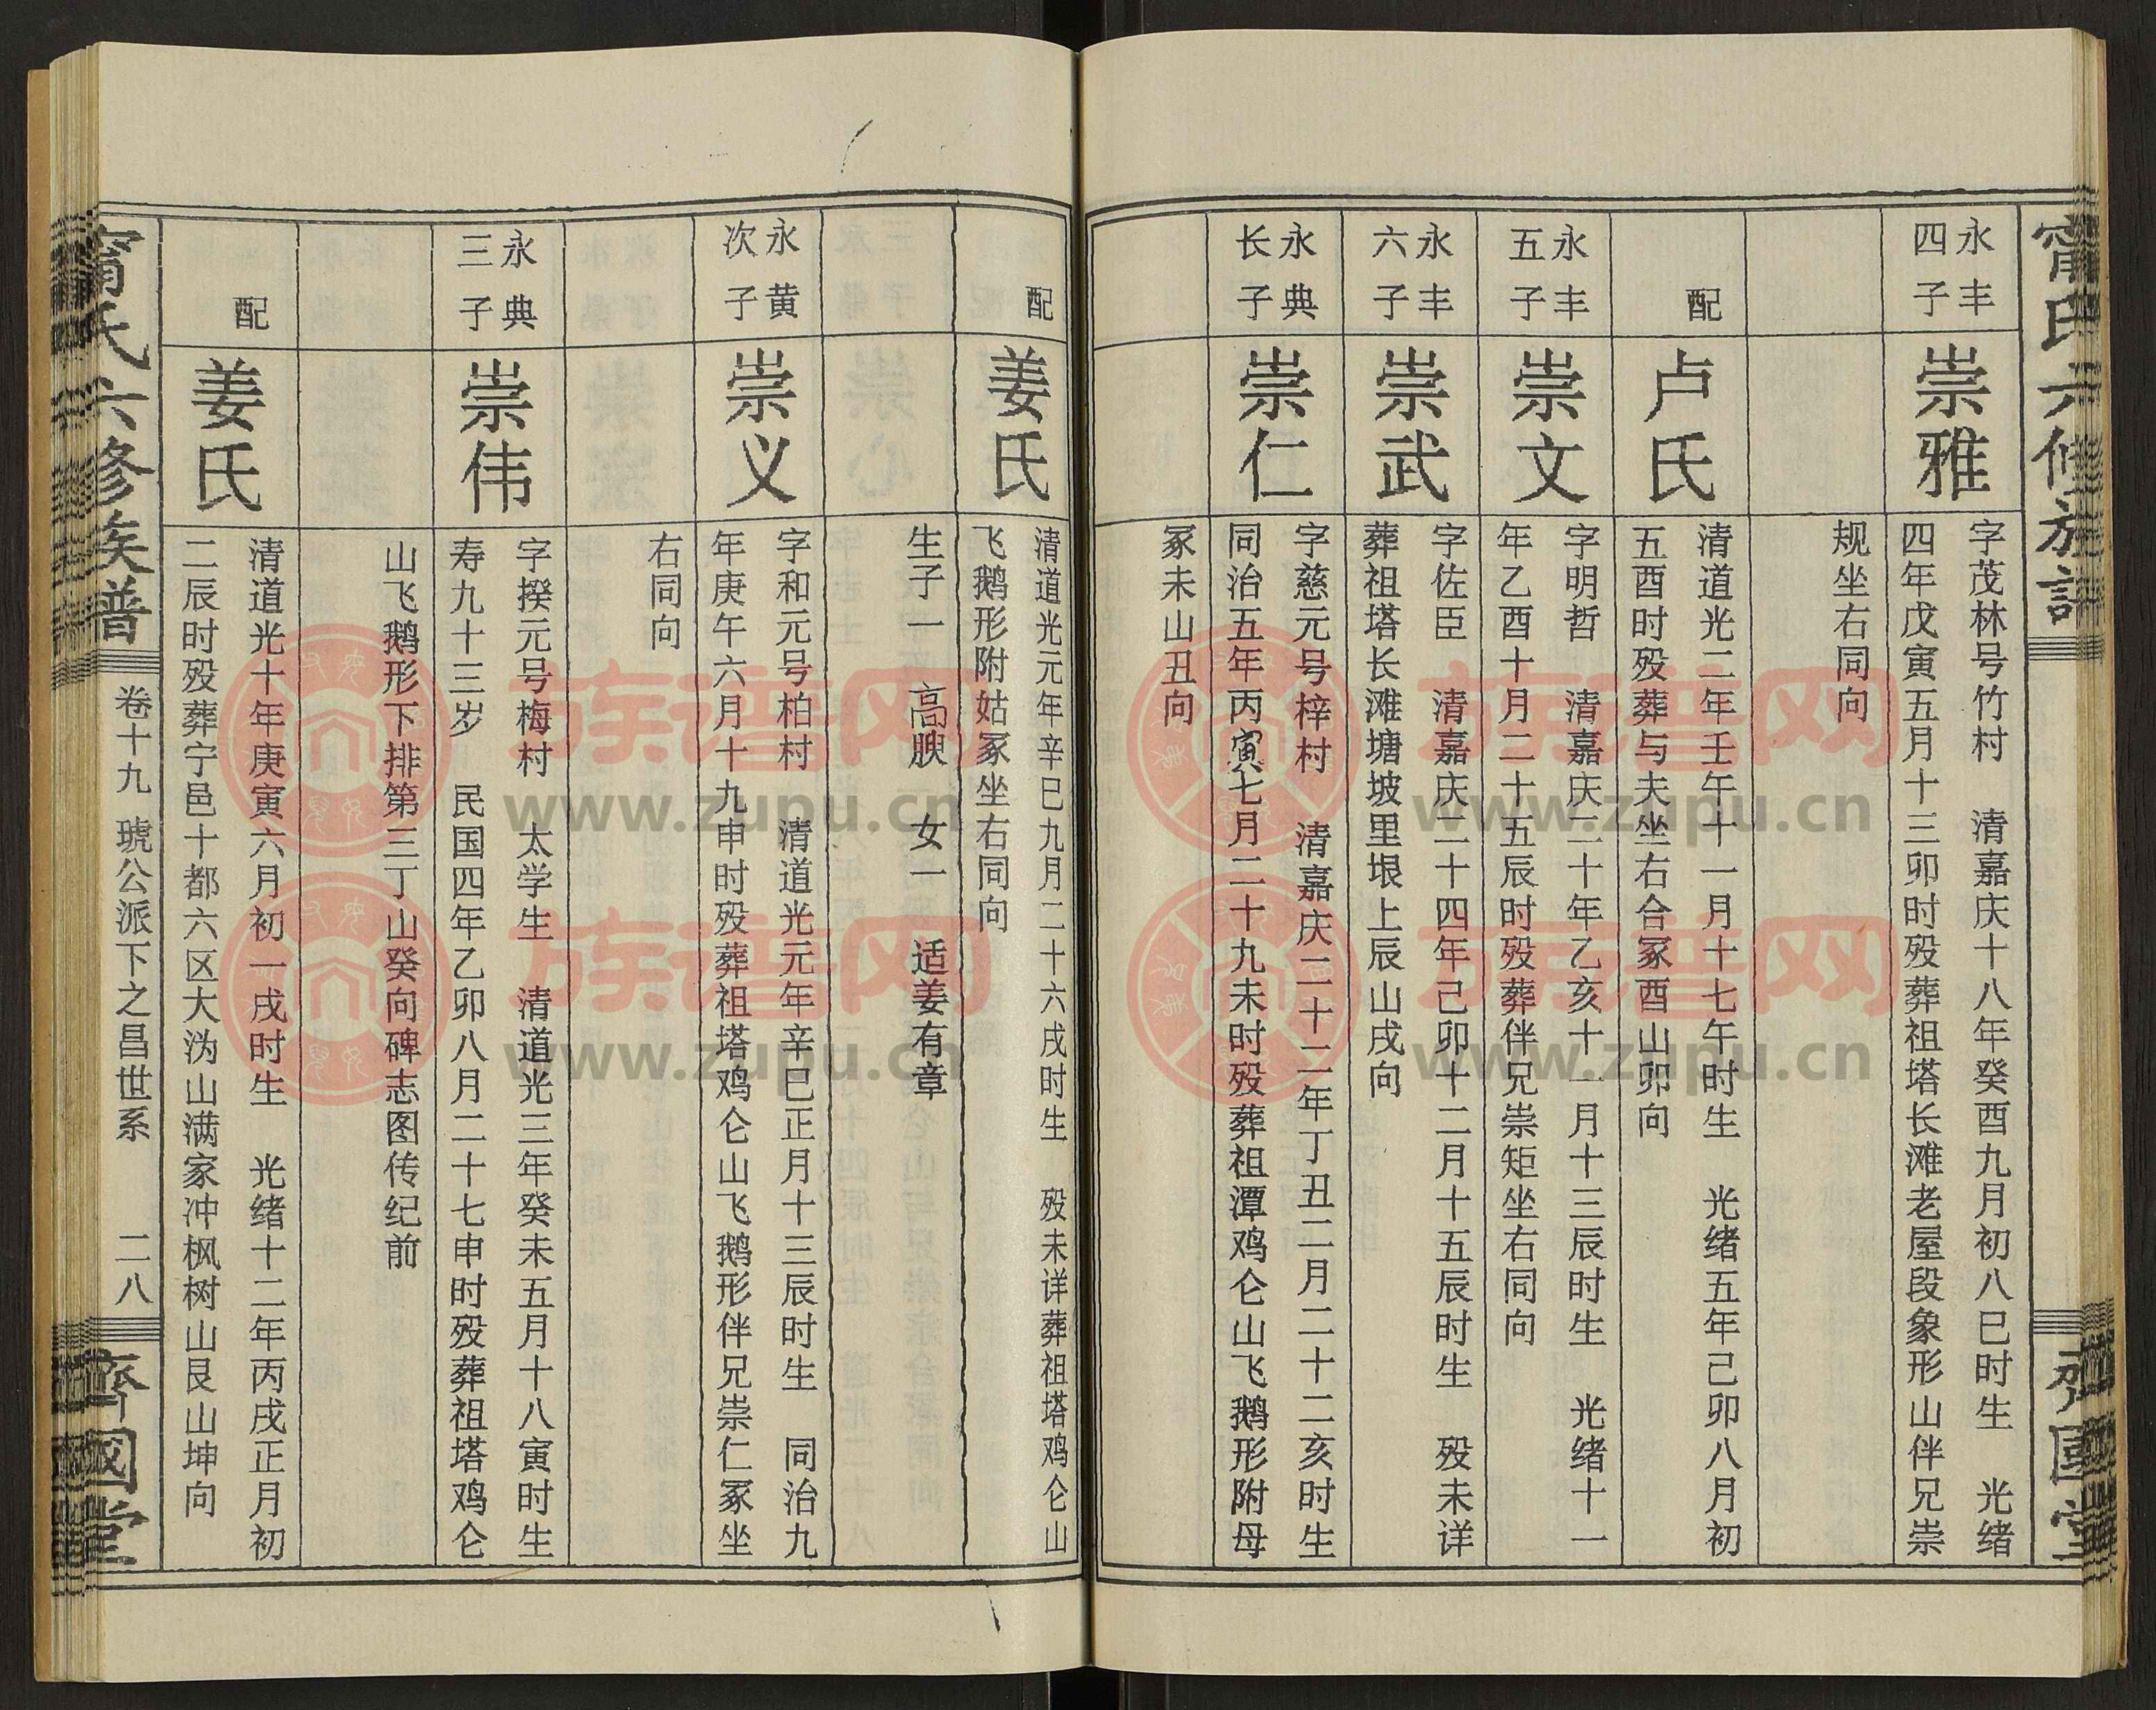 甯氏六修族谱
齊國堂
永丰
四子
崇雅
字茂林号竹村 清嘉庆十八年癸酉九月初八巳时生 光绪
四年戊寅五月十三卯时殁葬祖塔长滩老屋段象形山伴兄崇
规坐右同向
配
卢氏
清道光二年壬午十一月十七午时生 光绪五年己卯八月初
五酉时殁葬与夫坐右合冢酉山卯向
永丰
五子
崇文
字明哲 清嘉庆二十年乙亥十一月十三辰时生 光绪十一
年乙酉十月二十五辰时殁葬伴兄崇矩坐右同向
永丰
六子
崇武
字佐臣 清嘉庆二十四年己卯十二月十五辰时生 殁未详
葬祖塔长滩塘坡里垠上辰山戌向
永典
长子
崇仁
字慈元号梓村 清嘉庆二十二年丁丑二月二十二亥时生
同治五年丙寅七月二十九未时殁葬祖潭鸡仑山飞鹅形附母
冢未山丑向
配
姜氏
清道光元年辛巳九月二十六戌时生 殁未详葬祖塔鸡仑山
飞鹅形附姑冢坐右同向
生子一 高腴 女一 适姜有章
永黄
次子
崇义
字和元号柏村 清道光元年辛巳正月十三辰时生 同治九
年庚午六月十九申时殁葬祖塔鸡仑山飞鹅形伴兄崇仁冢坐
右同向
永典
三子
崇伟
字揆元号梅村 太学生 清道光三年癸未五月十八寅时生
寿九十三岁 民国四年乙卯八月二十七申时殁葬祖塔鸡仑
山飞鹅形下排第三丁山癸向碑志图传纪前
配
姜氏
清道光十年庚寅六月初一戌时生 光绪十二年丙戌正月初
二辰时殁葬宁邑十都六区大沩山满家冲枫树山艮山坤向
甯氏六修族谱
卷十九 琥公派下之昌世系 二八
齊國堂
族谱网
www.zupu.cn
族谱网
www.zupu.cn
族谱网
www.zupu.cn
族谱网
www.zupu.cn